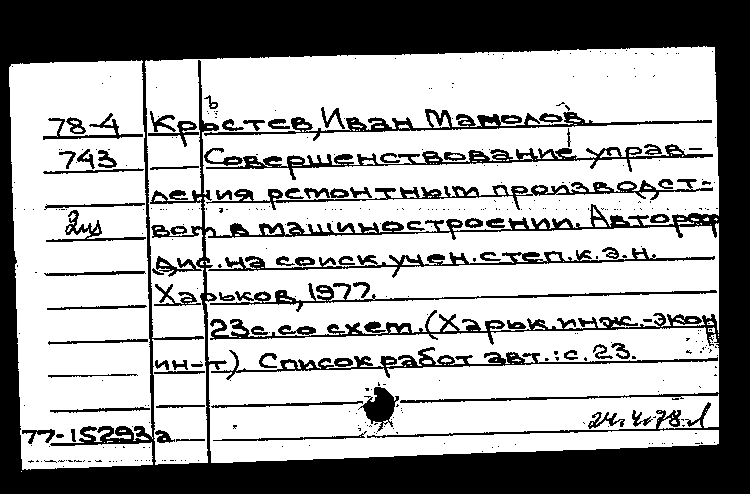 78-4 Кръстев, Иван Мамолов.
743 Совершенствование управ-
ления ремонтным производст-
вом в машиностроении. Автореф
дис. на соиск. учен. степ. к. э. н.
Харьков, 1977.
23с. со схем. (Харьк. инж.-экон
ин-т). Список работ авт.: с. 23.
24.4.78
77-15293а